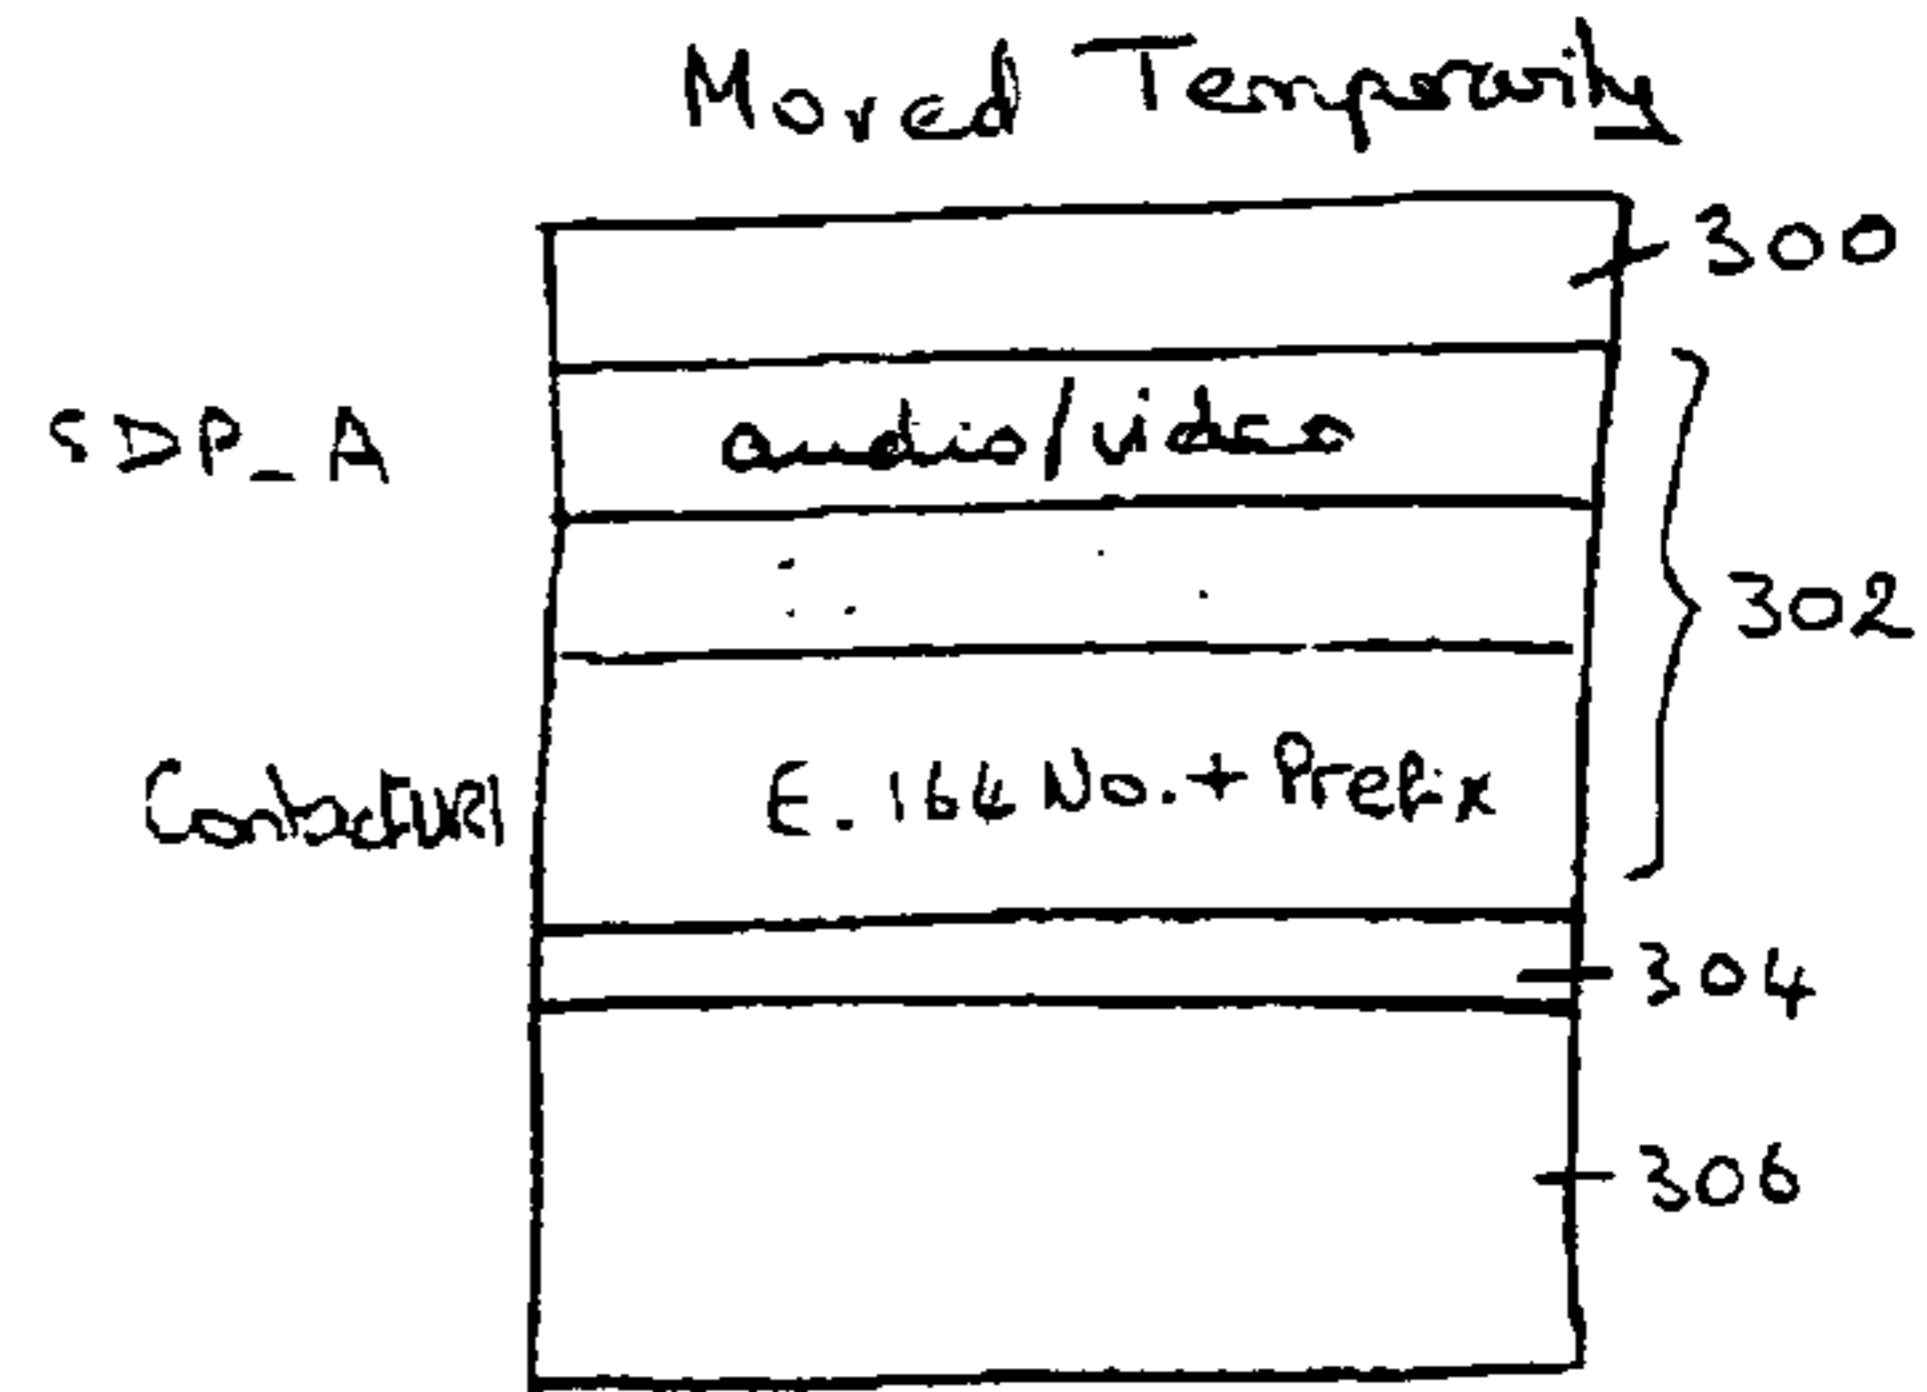 Moved Temporarily
300
SDP_A audio/video
302
ContactURI E.164 No.+ Prefix
304
306